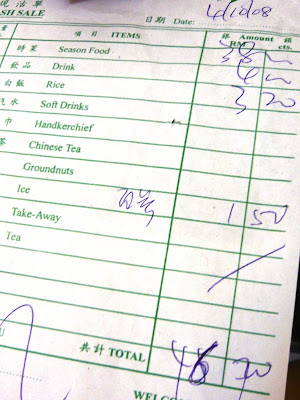 沽單
ASH SALE 日期 Date: 4/10/08
項目 ITEMS 銀 Amount 額
RM cts.
時菜 Season Food 38 —
飲品 Drink 4 —
白飯 Rice 3 20
汽水 Soft Drinks
巾 Handkerchief
茶 Chinese Tea
Groundnuts
Ice
Take-Away 1 50
Tea
共計 TOTAL 46 70
WELCO